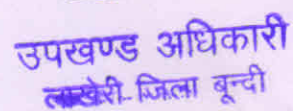 उपखण्ड अधिकारी
लाखेरी-जिला बून्दी